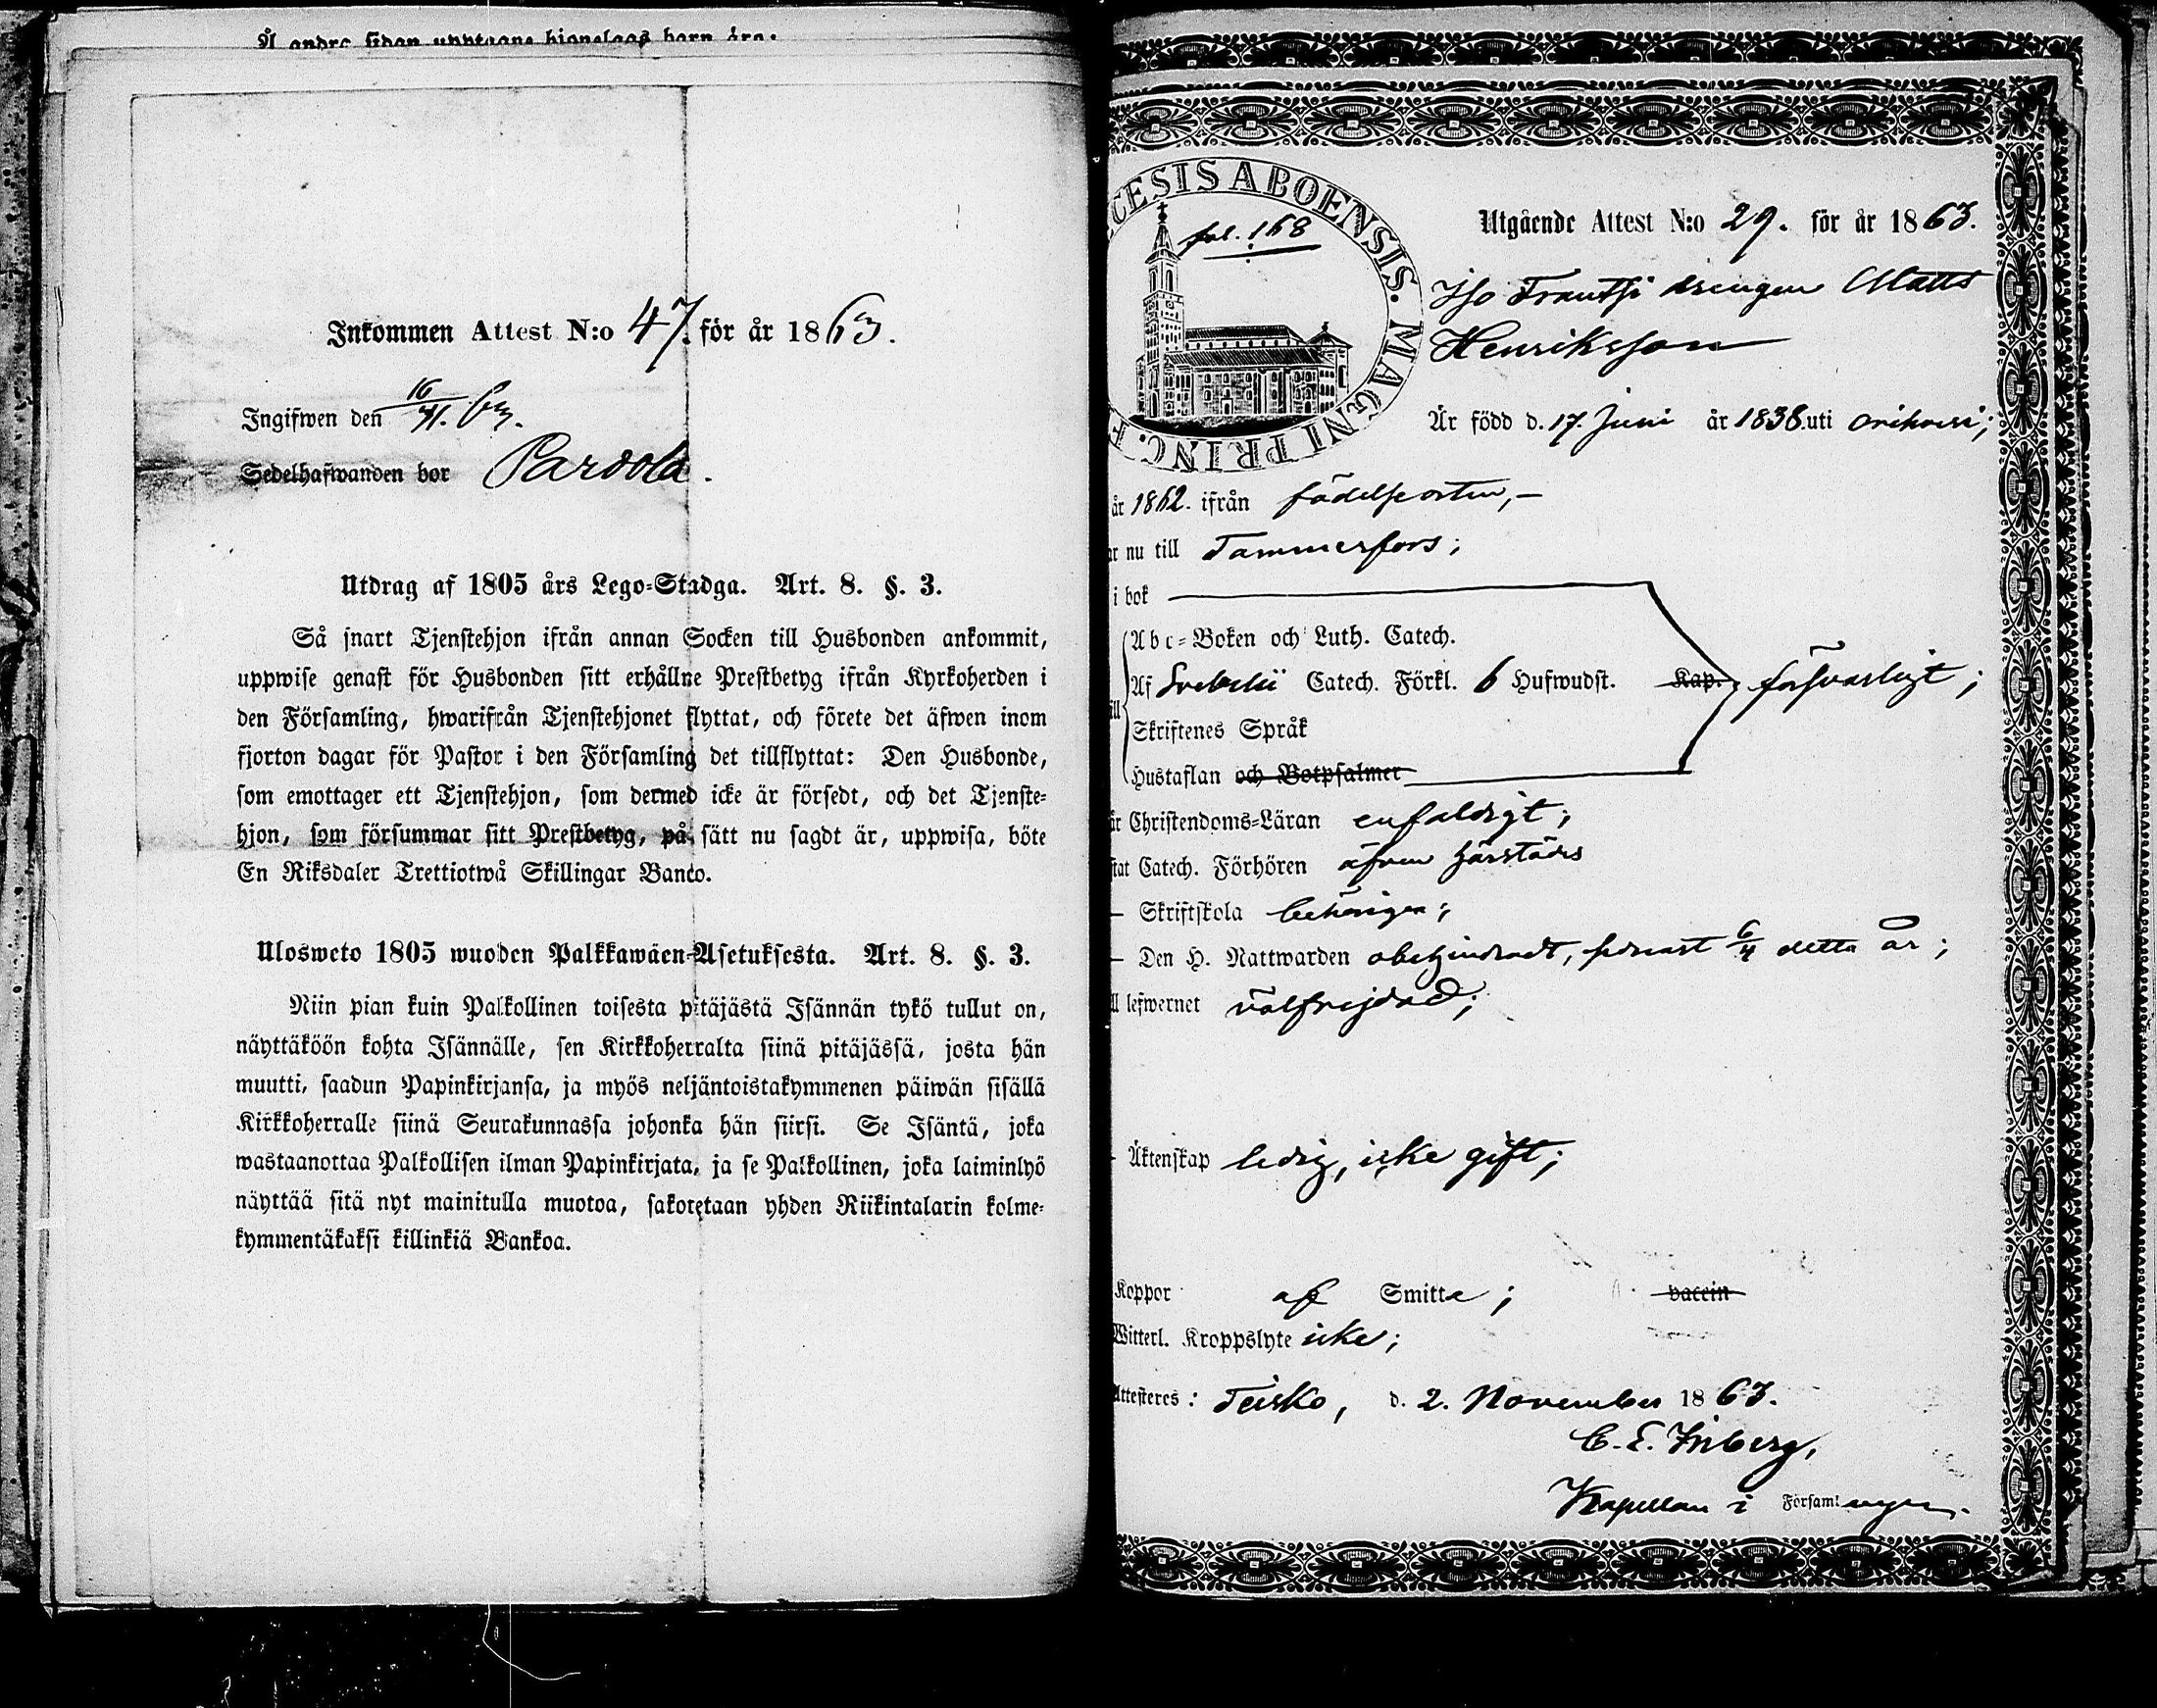 Å andre sidan upptagne hjonelags barn äro:
Inkommen Attest N:o 47. för år 1863.
Ingifwen den 16/11. 63.
Sedelhafwanden bor Parvola.
Utdrag af 1805 års Lego-Stadga. Art. 8. §. 3.
Så snart Tjenstehjon ifrån annan Socken till Husbonden ankommit,
uppwise genast för Husbonden sitt erhållne Prestbetyg ifrån Kyrkoherden i
den Församling, hwarifrån Tjenstehjonet flyttat, och förete det äfwen inom
fjorton dagar för Pastor i den Församling det tillflyttat: Den Husbonde,
som emottager ett Tjenstehjon, som dermed icke är försedt, och det Tjenste-
hjon, som försummar sitt Prestbetyg, på sätt nu sagdt är, uppwisa, böte
En Riksdaler Trettiotwå Skillingar Banco.
Ulosweto 1805 wuoden Palkkawäen-Asetuksesta. Art. 8. §. 3.
Niin pian kuin Palkollinen toisesta pitäjästä Isännän tykö tullut on,
näyttäköön kohta Isännälle, sen Kirkkoherralta siinä pitäjässä, josta hän
muutti, saadun Papinkirjansa, ja myös neljäntoistakymmenen päiwän sisällä
Kirkkoherralle siinä Seurakunnassa johonka hän siirsi. Se Isäntä, joka
wastaanottaa Palkollisen ilman Papinkirjata, ja se Palkollinen, joka laiminlyö
näyttää sitä nyt mainitulla muotoa, sakotetaan yhden Riikintalarin kolme-
kymmentäkaksi killinkiä Bankoa.
CESIS ABOENSIS. MAGNI PRINC. F
fol. 168
Utgående Attest N:o 29. för år 1863.
Iso Frantsi drengen Matts
Henriksson
Är född d. 17. Juni år 1838. uti Orihvesi;
år 1862. ifrån födelseorten,—
nu till Tammerfors;
i bok
Abc-Boken och Luth. Catech.
Af Svebelii Catech. Förkl. 6 Hufwudst. Kap. försvarligt;
Skriftenes Språk
Hustaflan och Botpsalmer
Christendoms-Läran enfaldigt;
Catech. Förhören äfven härstädes
— Skriftskola behörigen;
— Den H. Nattwarden obehindradt, senast 6/4 detta år;
lefwernet välfrejdad;
Äktenskap ledig, icke gift;
Koppor af Smitta; vaccin
Witterl. Kroppslyte icke;
Attesteres: Teisko, d. 2. November 1863.
C. E. Friberg,
Kapellan i Församlingen.